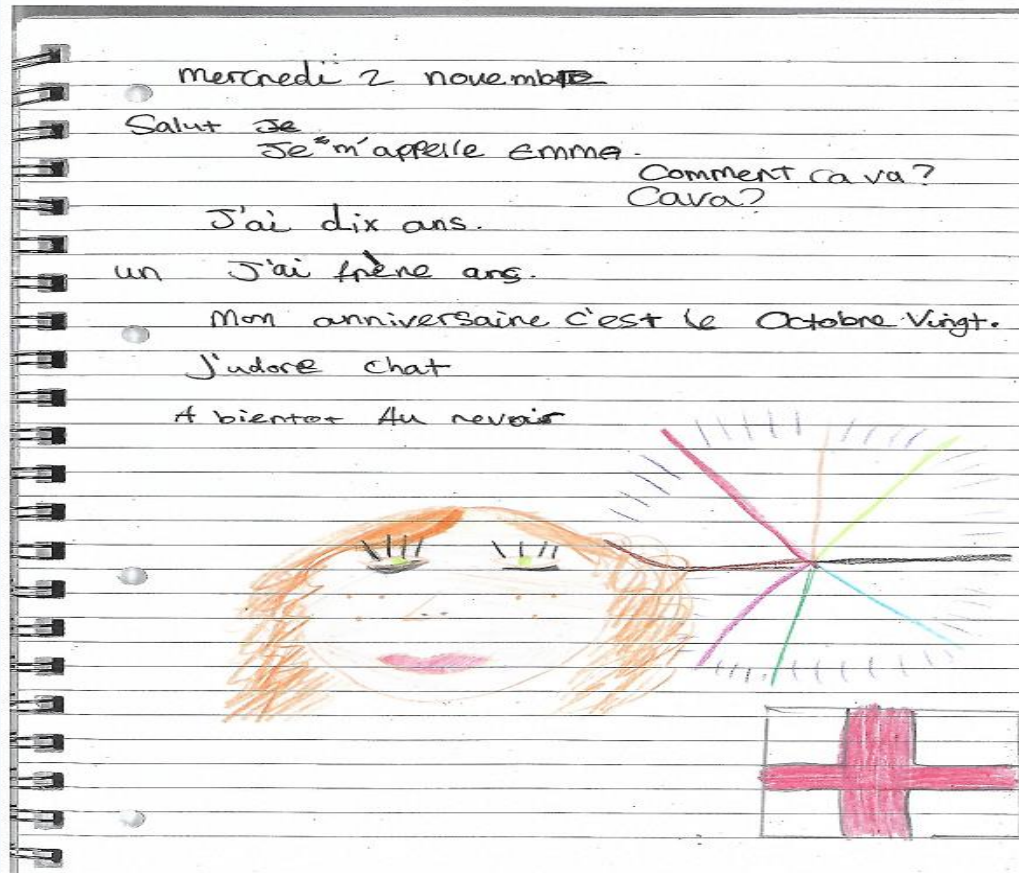 mercredi 2 novembre
Salut Je
Je m'appelle emma.
Comment ca va?
Cava?
J'ai dix ans.
un J'ai frère ans.
Mon anniversaire c'est le Octobre Vingt.
J'adore chat
A bientot Au revoir